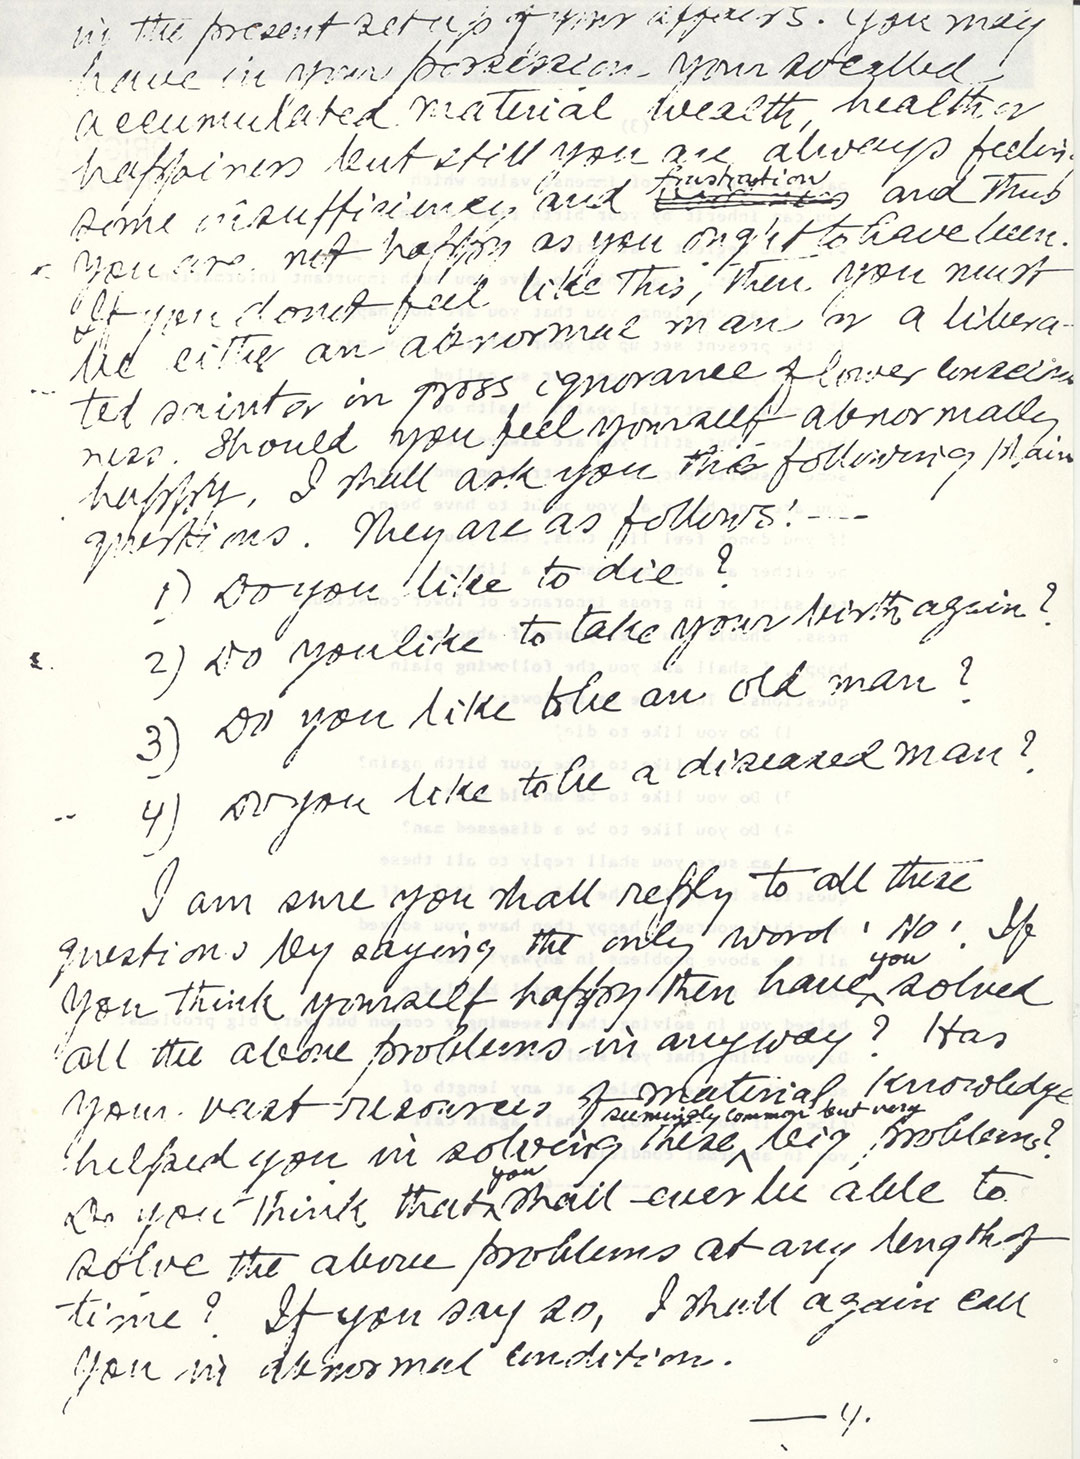 in the present set up of your affairs. You may
have in your possession your so called
accumulated material wealth, health or
happiness but still you are always feeling
some insufficiency and frustration and thus
you are not happy as you ought to have been.
If you donot feel like this, then you must
be either an abnormal man or a libera-
ted saint or in gross ignorance of lower conscious
ness. Should you feel yourself abnormally
happy, I shall ask you the following plain
questions. They are as follows:---
1) Do you like to die?
2) Do you like to take your birth again?
3) Do you like to be an old man?
4) Do you like to be a diseased man?
I am sure you shall reply to all these
questions by saying the only word 'No'. If
you think yourself happy then have you solved
all the above problems in anyway? Has
your vast resources of material knowledge
helped you in solving these seemingly common but very big problems?
Do you think that you shall ever be able to
solve the above problems at any length of
time? If you say so, I shall again call
you in abnormal condition.
—4.